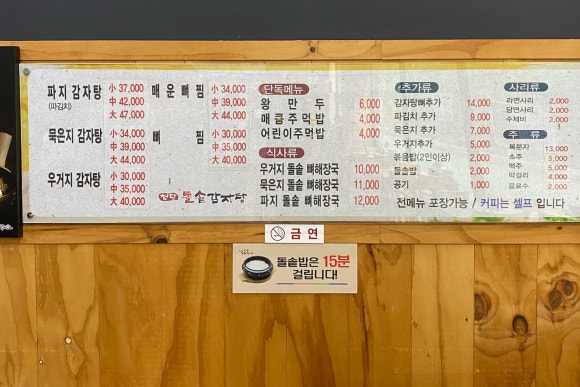 파지 감자탕 小 37,000
(파김치) 中 42,000
大 47,000
묵은지 감자탕 小 34,000
中 39,000
大 44,000
우거지 감자탕 小 30,000
中 35,000
大 40,000
매운뼈찜 小 34,000
中 39,000
大 44,000
뼈찜 小 30,000
中 35,000
大 40,000
돌솥감자탕
단독메뉴
왕만두 6,000
매콤주먹밥 4,000
어린이주먹밥 4,000
식사류
우거지 돌솥 뼈해장국 10,000
묵은지 돌솥 뼈해장국 11,000
파지 돌솥 뼈해장국 12,000
추가류
감자탕뼈추가 14,000
파김치 추가 9,000
묵은지 추가 7,000
우거지추가 5,000
볶음밥(2인이상) 2,000
돌솥밥 2,000
공기 1,000
사리류
라면사리 2,000
당면사리 2,000
수제비 2,000
주류
복분자 13,000
소주 5,000
맥주 5,000
막걸리 4,000
음료수 2,000
전메뉴 포장가능 / 커피는 셀프 입니다
금연
돌솥밥은 15분
걸립니다!